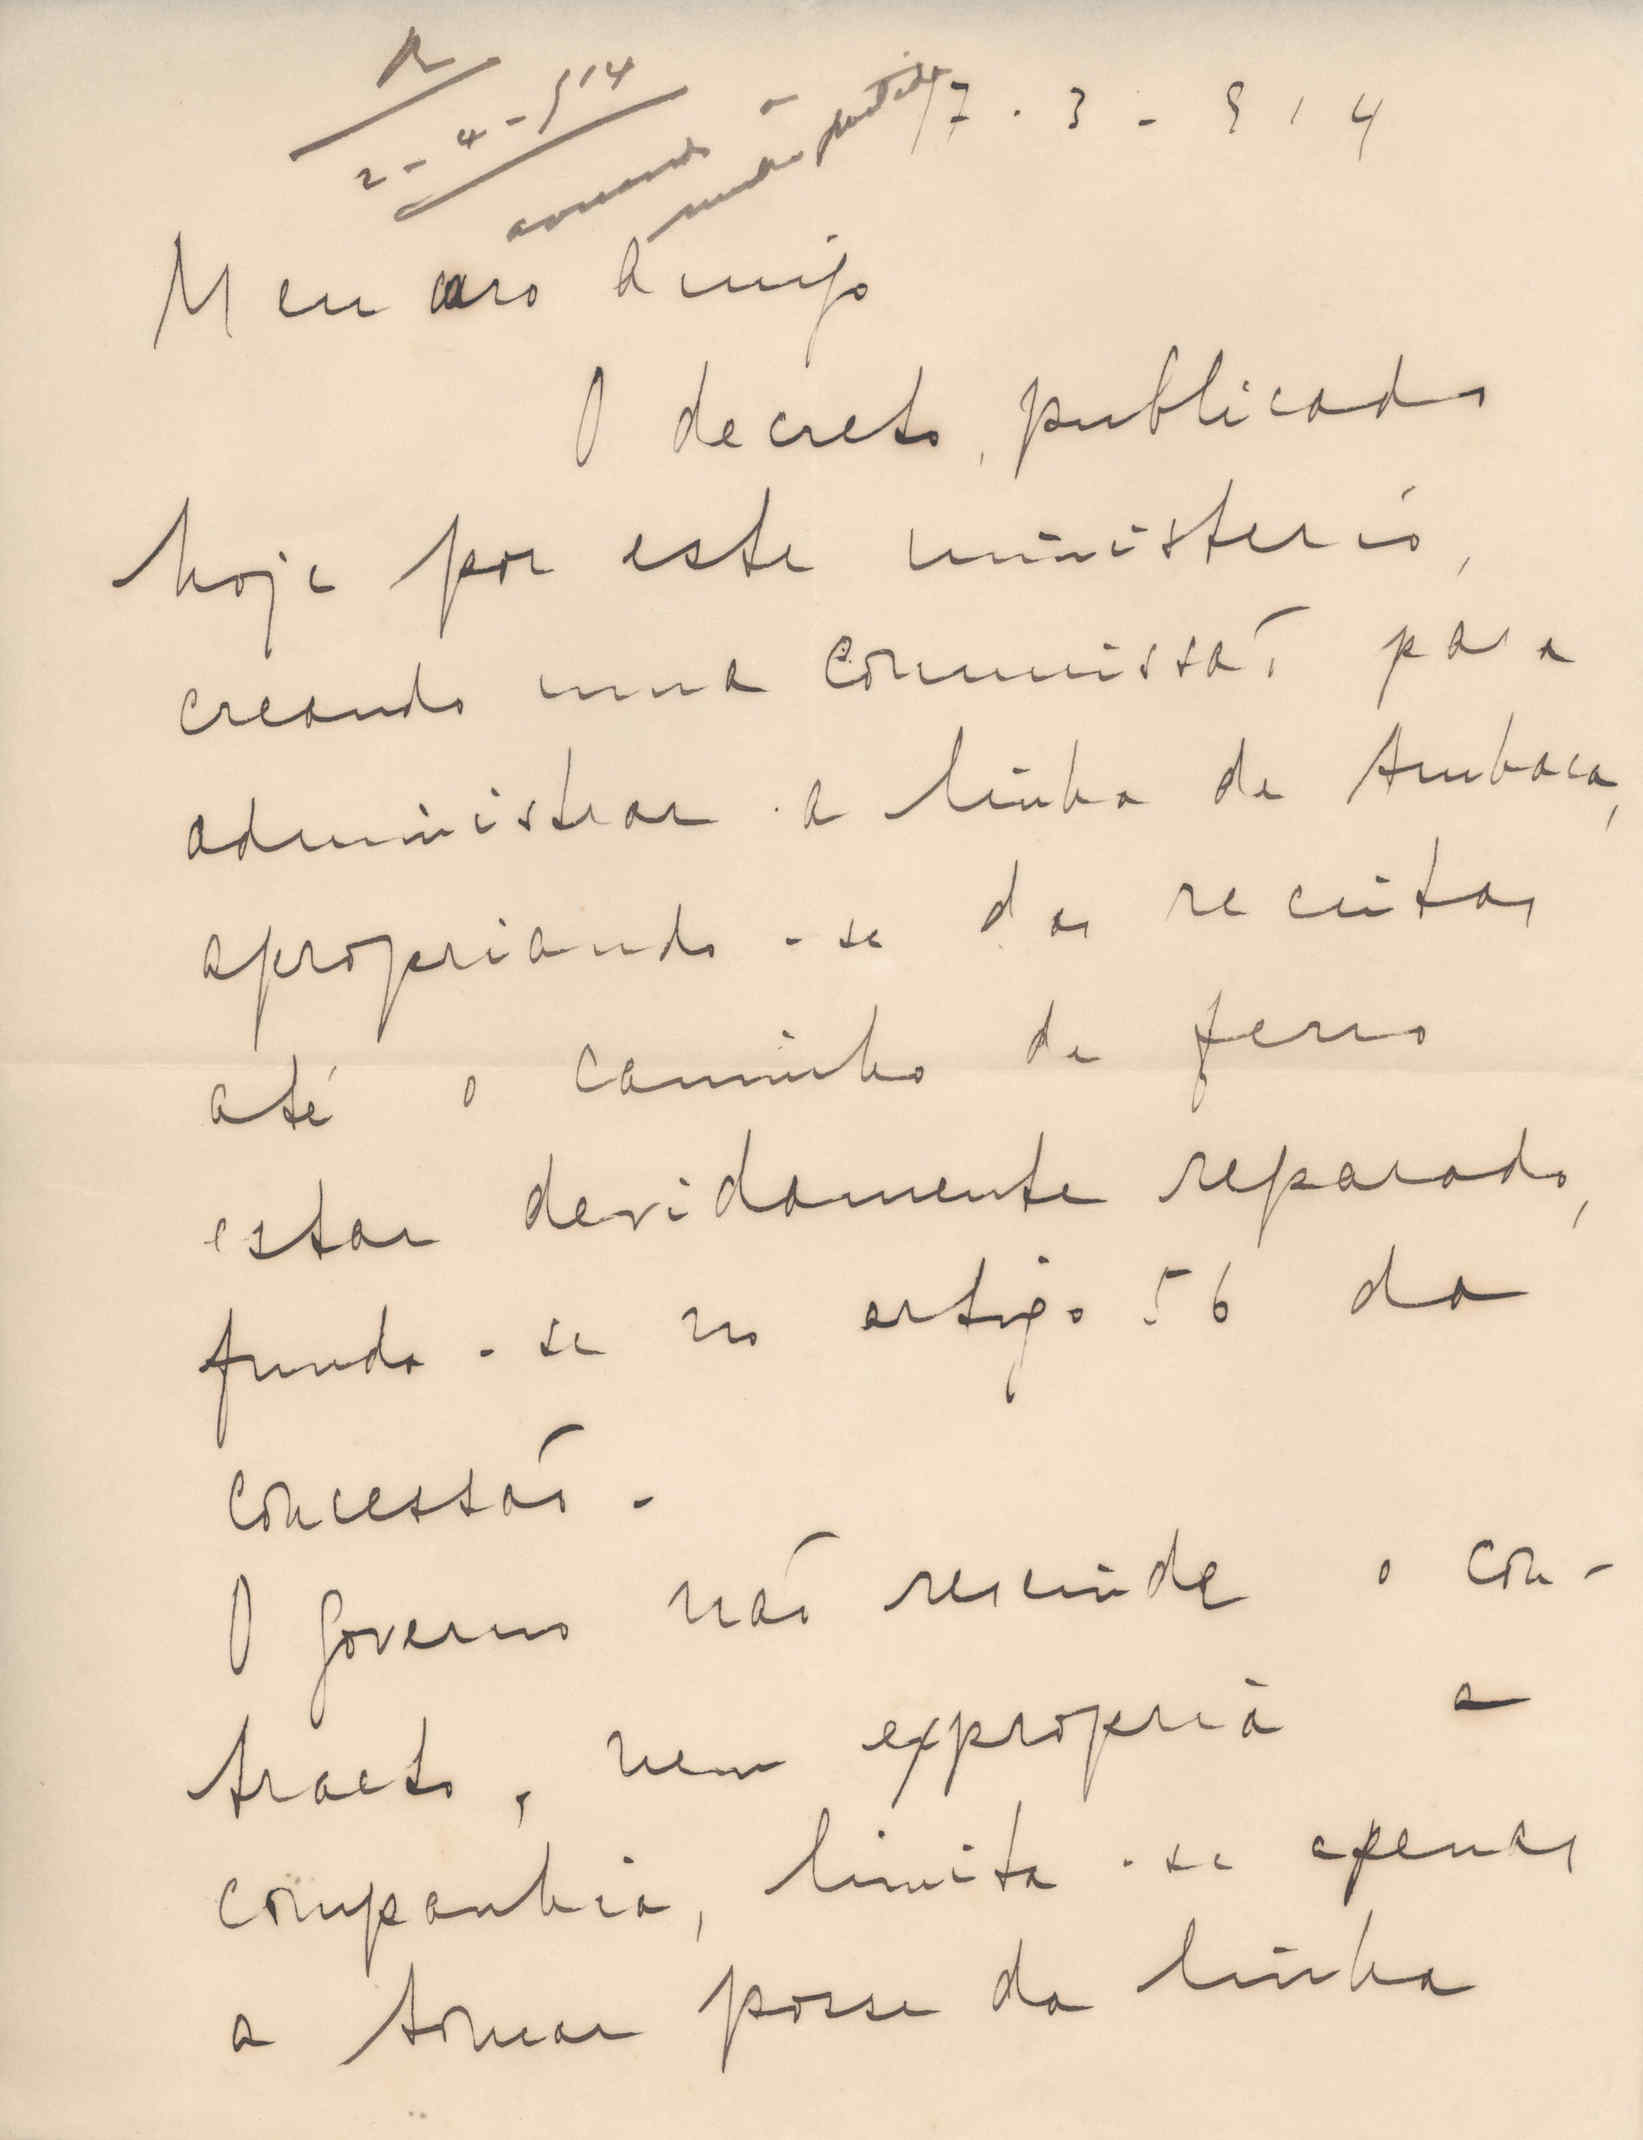 R
2-4-914
17-3-914
Meu caro Amigo
O decreto, publicado
hoje por este ministerio,
creando uma commissão para
administrar a linha de Ambaca,
apropriando-se das receitas
até o caminho de ferro
estar devidamente reparado,
funda-se no artigo 56 da
concessão.
O Governo não rescinde o con-
tracto, nem expropria a
companhia, limita-se apenas
a tomar posse da linha